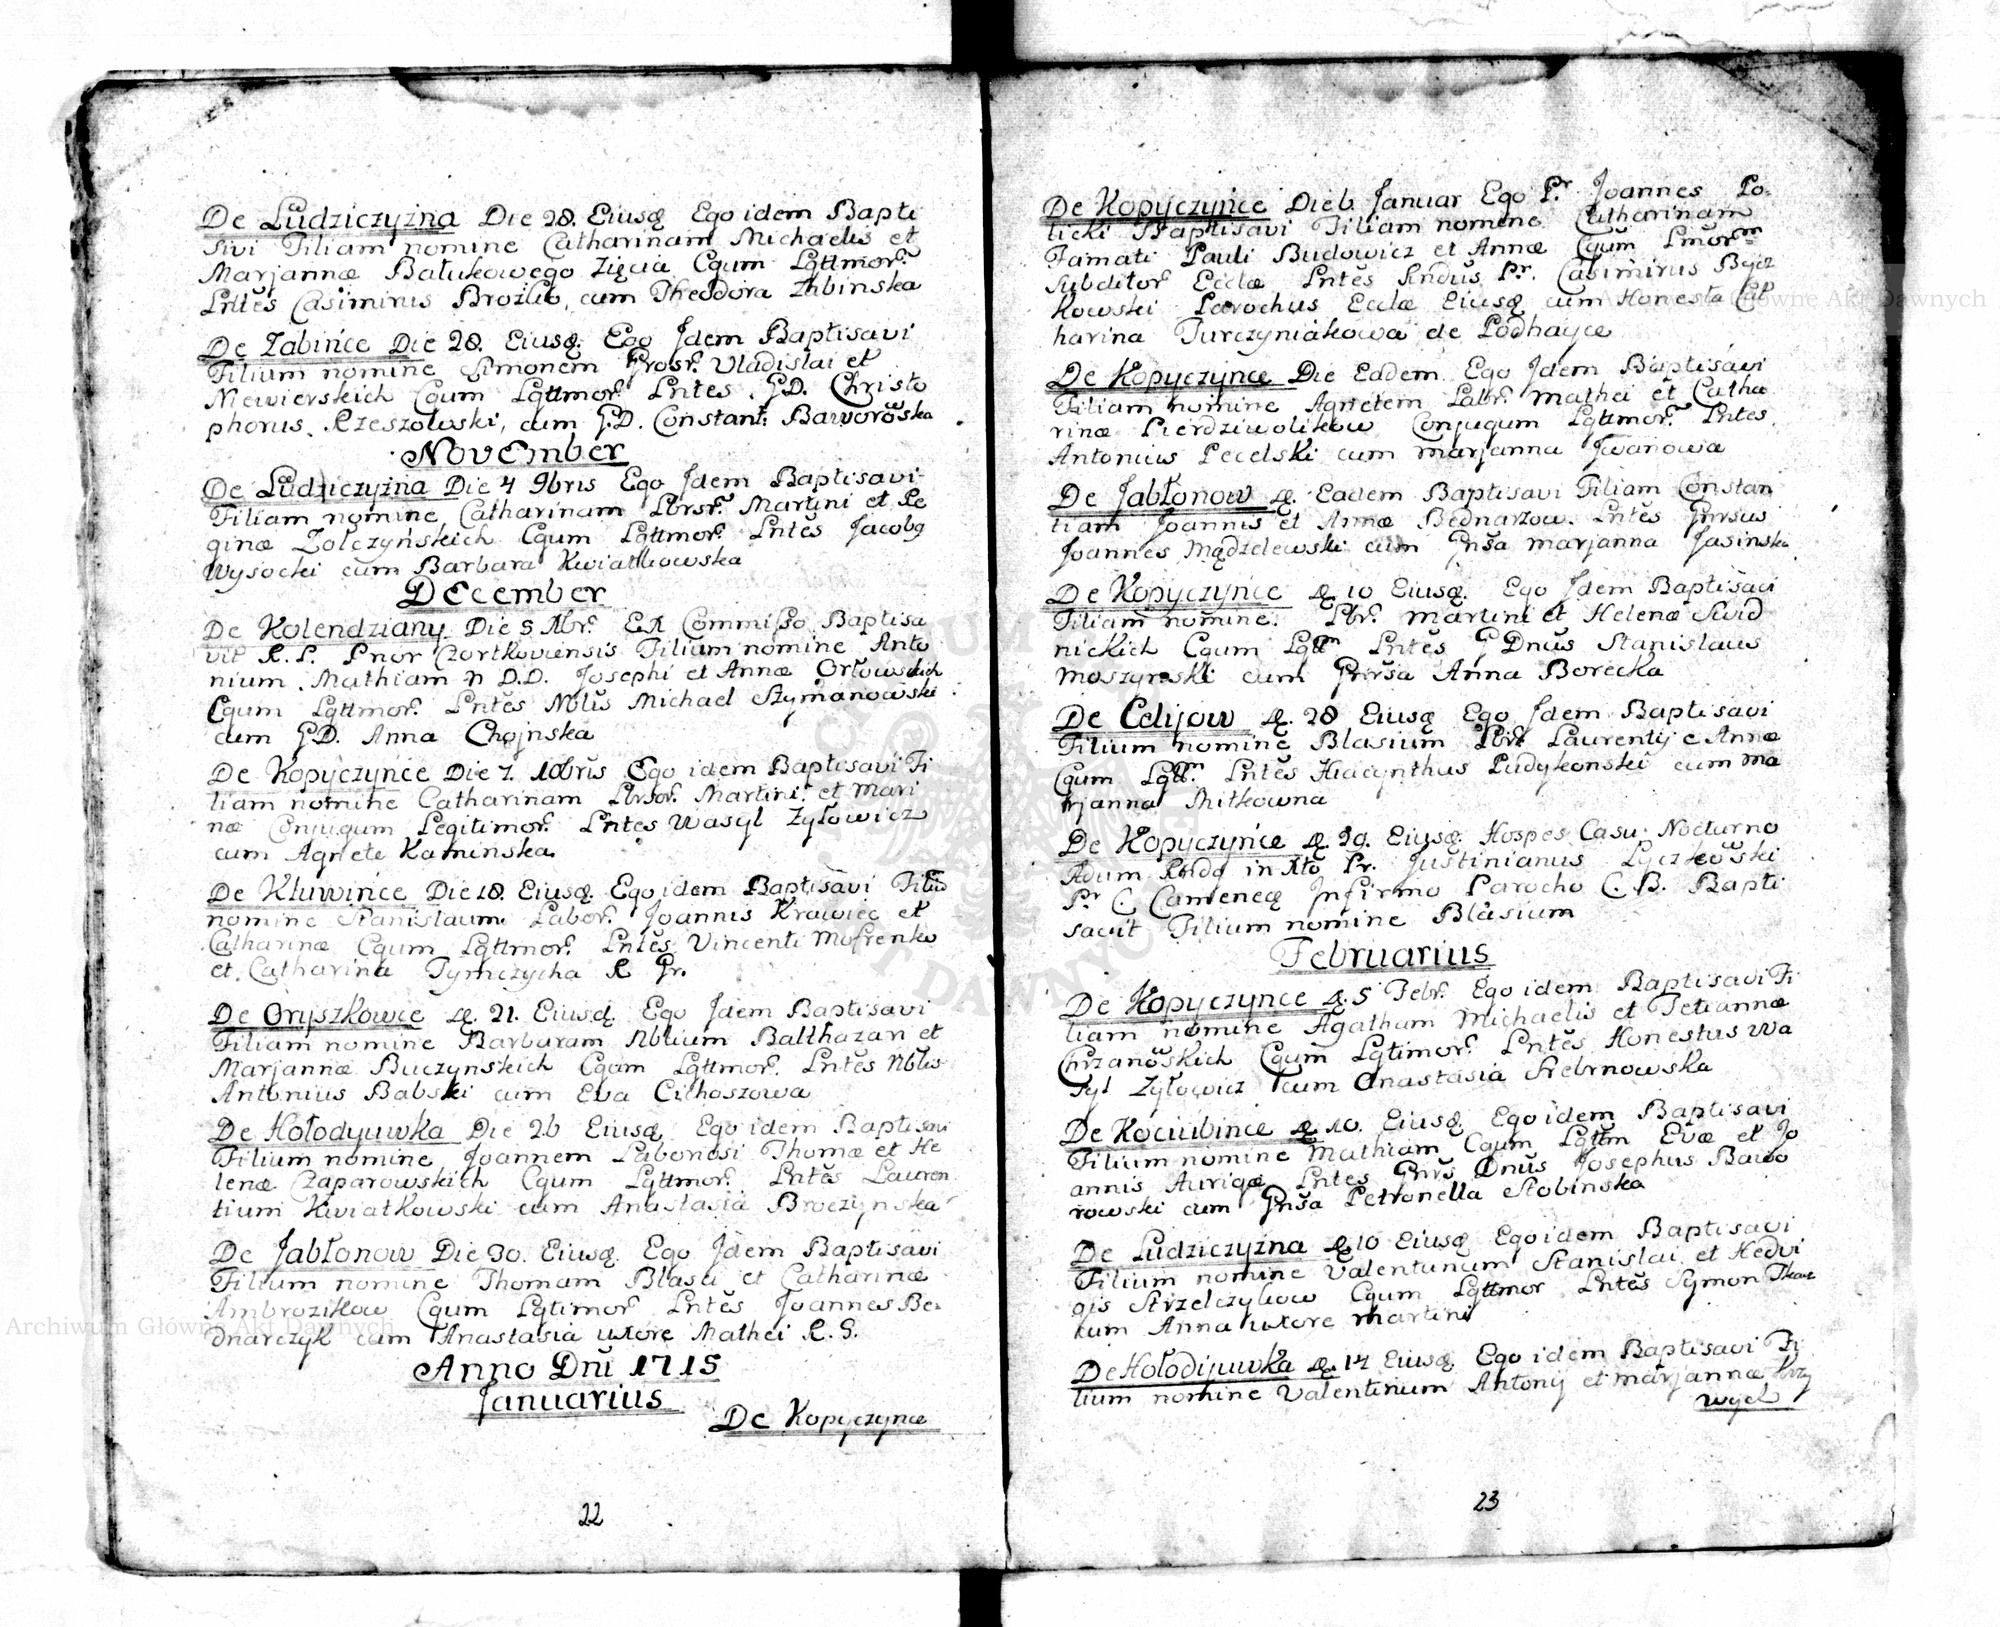 De Ludziczyzna Die 28. Eiusq Ego idem Bapti
sivi Filiam nomine Catharinam Michaelis et
Marjannæ Bałukowego Zięcia Cgum Lgttmor.
Lntĕs Casimirus Brozek, cum Theodora Zabinska
De Zabińce Die 28. Eiusq. Ego Jdem Baptisavi
Filium nomine Simonem Grosr. Vladislai et
Niewierskich Cgum Lgttmor. Lntes. GD. Christo
phorus Rzeszolwski, cum G.D. Constant: Baworŏska
November
De Ludziczyzna Die 4 9bris Ego Jdem Baptisavi
Filiam nomine Catharinam Lbrsr. Martini et Re
ginæ Zołczyńskich Cgum Lgttmor. Lntĕs Jacobq
Wysocki cum Barbara Kwiatkowska
DEcember
De Kolendziany Die 5 Xbr. EX Commisso Baptisa
vit R. P. Prior Czortkoviensis Filium nomine Anto
nium. Mathiam N D.D. Josephi et Annæ Orłowskich
Cgum Lgttmor. Lntĕs Nblis Michael Szymanowski
cum GD. Anna Chojnska
De Kopyczynce Die 7. 10bris Ego idem Baptisavi Fi
liam nomine Catharinam Lbrsor. Martini et Mari
næ Conjugum Legitimor. Lntes Wasyl Zyłowicz
cum Agnete Kaminska.
De Kluwińce Die 18. Eiusq. Ego idem Baptisavi Filiū
nomine Stanislaum Labor. Joannis Krawiec et
Catharinæ Cgum Lgttmor. Lntĕs Vincenti Mosrenko
et Catharina Tymczycha R Gr.
De Oryszkowce d. 21. Eiusq. Ego Jdem Baptisavi
Filiam nomine Barbaram Nblium Balthazari et
Marjannæ Buczynskich Cgum Lgttmor. Lntĕs Nblis
Antonius Babski cum Eva Cilhoszowa
De Hołodyuwka Die 26 Eiusq Ego idem Baptisavi
Filium nomine Joannem Laboriosi Thomæ et He
lenæ Czaparowskich Cgum Lgttmor. Lntĕs Lauren
tium Kwiatkowski cum Anastasia Broczynska
De Jabłonow Die 30. Eiusq. Ego Jdem Baptisavi
Filium nomine Thomam Blasii et Catharinæ
Ambrozikow Cgum Lgtimor Lntĕs Joannes Be
dnarczyk cum Anastasia uxore Mathei R. G.
Anno Dnĭ 1715
Januarius
De Kopyczynce
22
De Kopyczyńce Die 6 Januar Ego Pr. Joannes Po
licki Baptisavi Filiam nomine Catharinam
Famati Pauli Budowicz et Annæ Cgum Lmorm
Subditor Ecclæ Lntĕs Rndus Pr. Casimirus Bycz
kowski Parochus Ecclæ Eiusq cum Honesta Cat
harina Turczyniakowa de Podhayce
De Kopyczynce Die Eadem Ego Jdem Baptisavi
Filiam nomine Agnetem Labr. Mathei et Catha
rinæ Pierdziwolikow Conjugum Lgttmor. Lntes
Antonius Pecelski cum Marjanna Jwanowa
De Jabłonow d. Eadem Baptisavi Filiam Constan
tiam Joannis et Annæ Bednarzow. Lntĕs Gnrsus
Joannes Mądzelewski cum Gnša Marjanna Jasinska
De Kopyczynce d. 10 Eiusq. Ego Jdem Baptisavi
Filiam nomine. Lbr. Martini et Helenæ Swid
nickich Cgum Lgttm Lntĕs G Dnŭs Stanislaus
Moszynski cum Gnrša Anna Borecka
De Celijow d. 28 Eiusq Ego Jdem Baptisavi
Filium nomine Blasium Lbr. Laurentij e Annæ
Cgum Lgttm Lntĕs Hiacynthus Ludykonski cum Ma
rjanna Mitkowna
De Kopyczynce d. 29. Eiusq. Hospes Casu Nocturno
Adum Rndo in Xto Pr. Justinianus Lyczkoŏski
Pr C. Cameneq Jnfirmo Parocho C. B. Bapti
savit Filium nomine Blasium
Februarius
De Kopyczynce d. 5 Febr. Ego idem Baptisavi Fi
liam nomine Agatham Michaelis et Tetiannæ
Chrzanŏskich Cgum Lgtimor. Lntĕs Honestus Wa
syl Zyłowicz cum Anastasia Srebrnowska
De Kociubince d. 10. Eiusq Ego idem Baptisavi
Filium nomine Mathiam Cgum Lgttm Evæ et Jo
annis Aurigæ Lntes Gnrs Dnŭs Josephus Bawo
rowski cum Gnša Petronella Slobinska
De Ludziczyzna d. 10 Eiusq Ego idem Baptisavi
Filium nomine Valentunum Stanislai et Hedvi
gis Strzelczykow Cgum Lgttmor Lntĕs Symon Tkacz
cum Anna uxore Martini
De Hołodijuwka d. 14 Eiusq Ego idem Baptisavi Fi
lium nomine Valentinum Antonij et Marjannæ Krzy
wych
23
Archiwum Główne Akt Dawnych